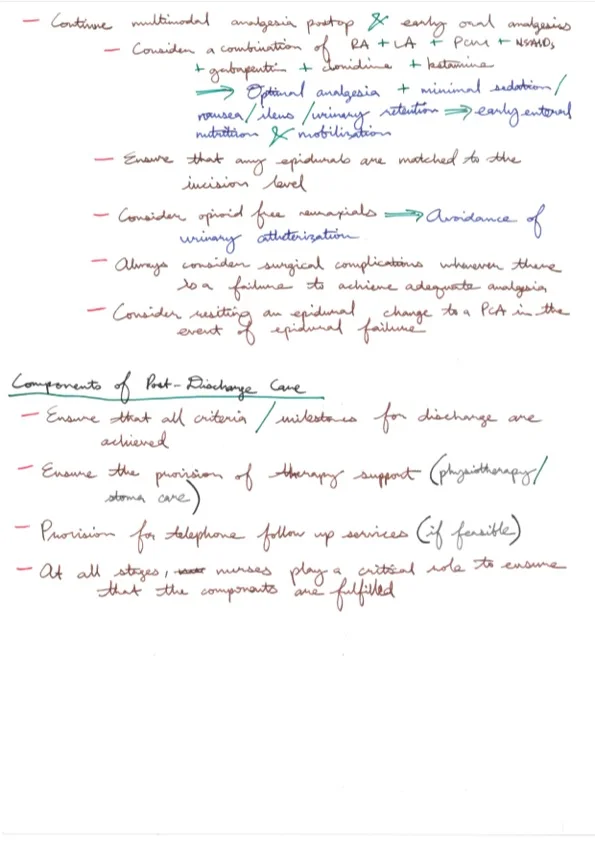 – Continue multimodal analgesia postop & early oral analgesics
– Consider a combination of RA + LA + PCM + NSAIDs
+ gabapentin + clonidine + ketamine
→ Optimal analgesia + minimal sedation/
nausea/ileus/urinary retention ⇒ early enteral
nutrition & mobilization
– Ensure that any epidurals are matched to the
incision level
– Consider opioid free neuraxials ⇒ Avoidance of
urinary catheterization
– Always consider surgical complications wherever there
is a failure to achieve adequate analgesia
– Consider resiting an epidural change to a PCA in the
event of epidural failure
Components of Post-Discharge Care
– Ensure that all criteria / milestones for discharge are
achieved
– Ensure the provision of therapy support (physiotherapy/
stoma care)
– Provision for telephone follow up services (if feasible)
– At all stages, nurses play a critical role to ensure
that the components are fulfilled